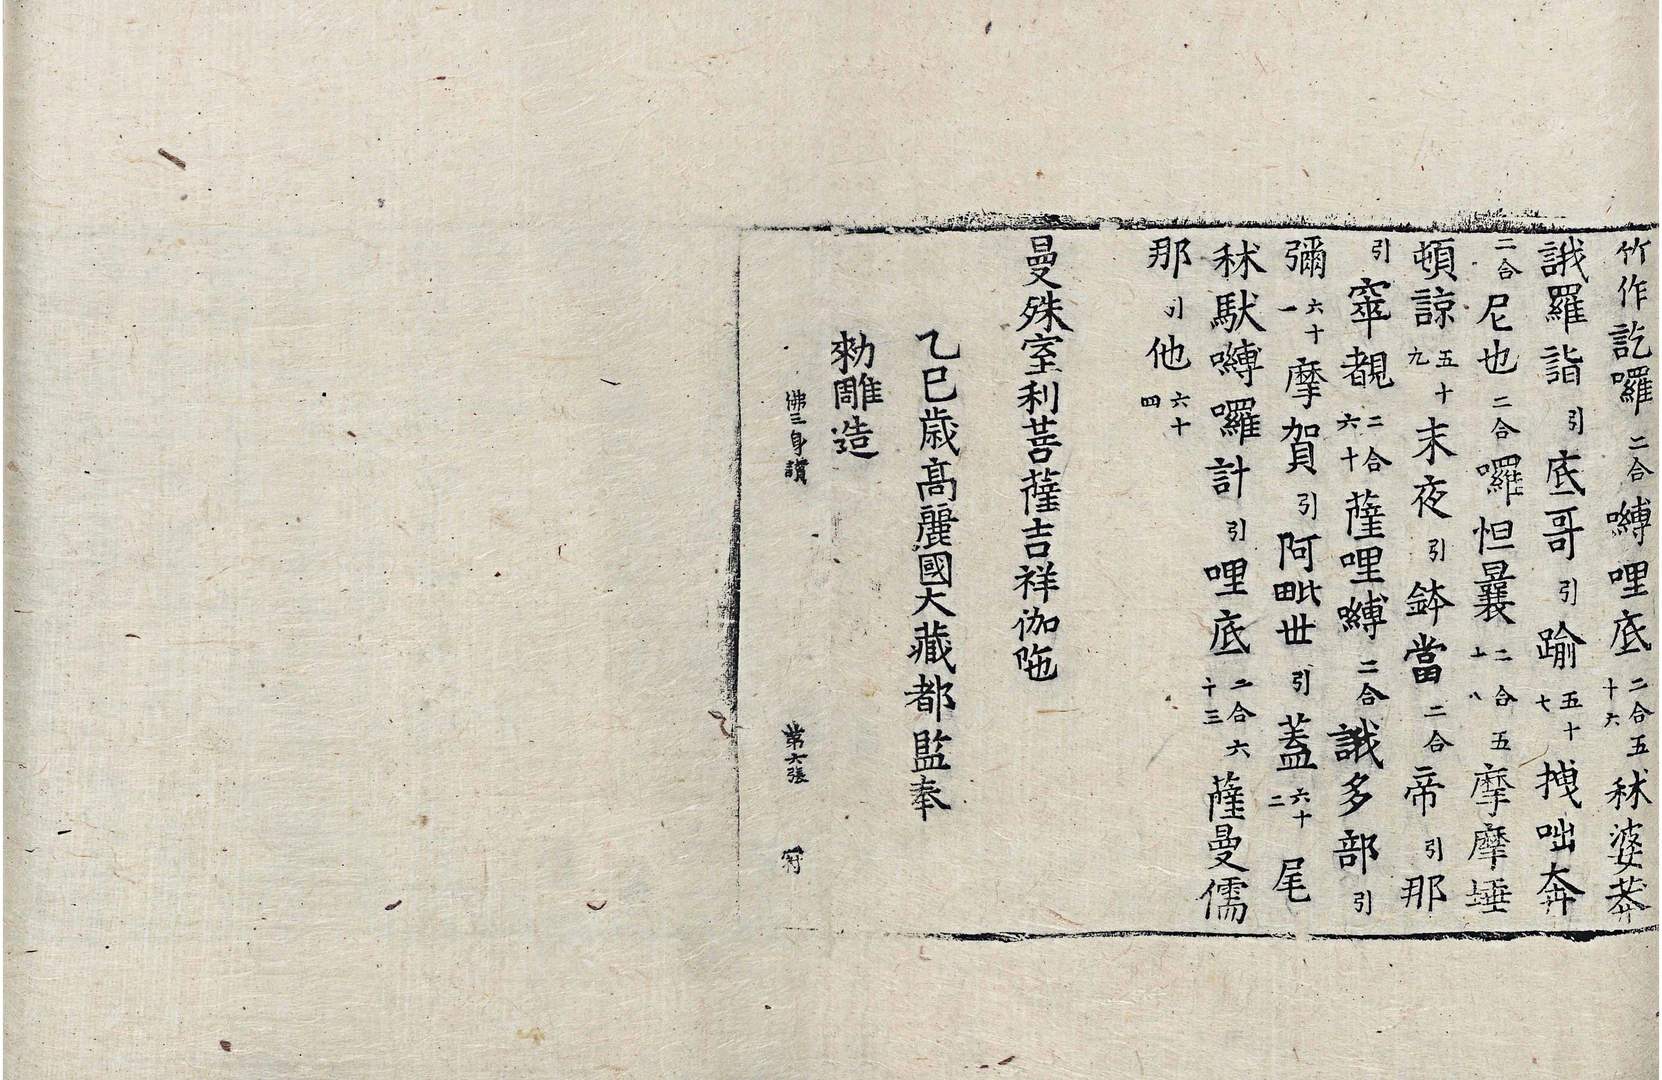 竹作訖囉二合嚩哩底二合五十六秫婆莾
誐羅詣引底哥引踰五十七拽咄奔
二合尼也二合囉怛曩二合五十八摩摩埵
頓諒五十九末夜引鉢當二合帝引那
引窣覩二合六十薩哩嚩二合誐多部引
彌六十一摩賀引阿毗世引蓋六十二尾
秫馱嚩囉計引哩底二合六十三薩曼儒
那引他六十四
曼殊室利菩薩吉祥伽陁
乙巳歲高麗國大藏都監奉
勑雕造
佛三身讃 第六張 府